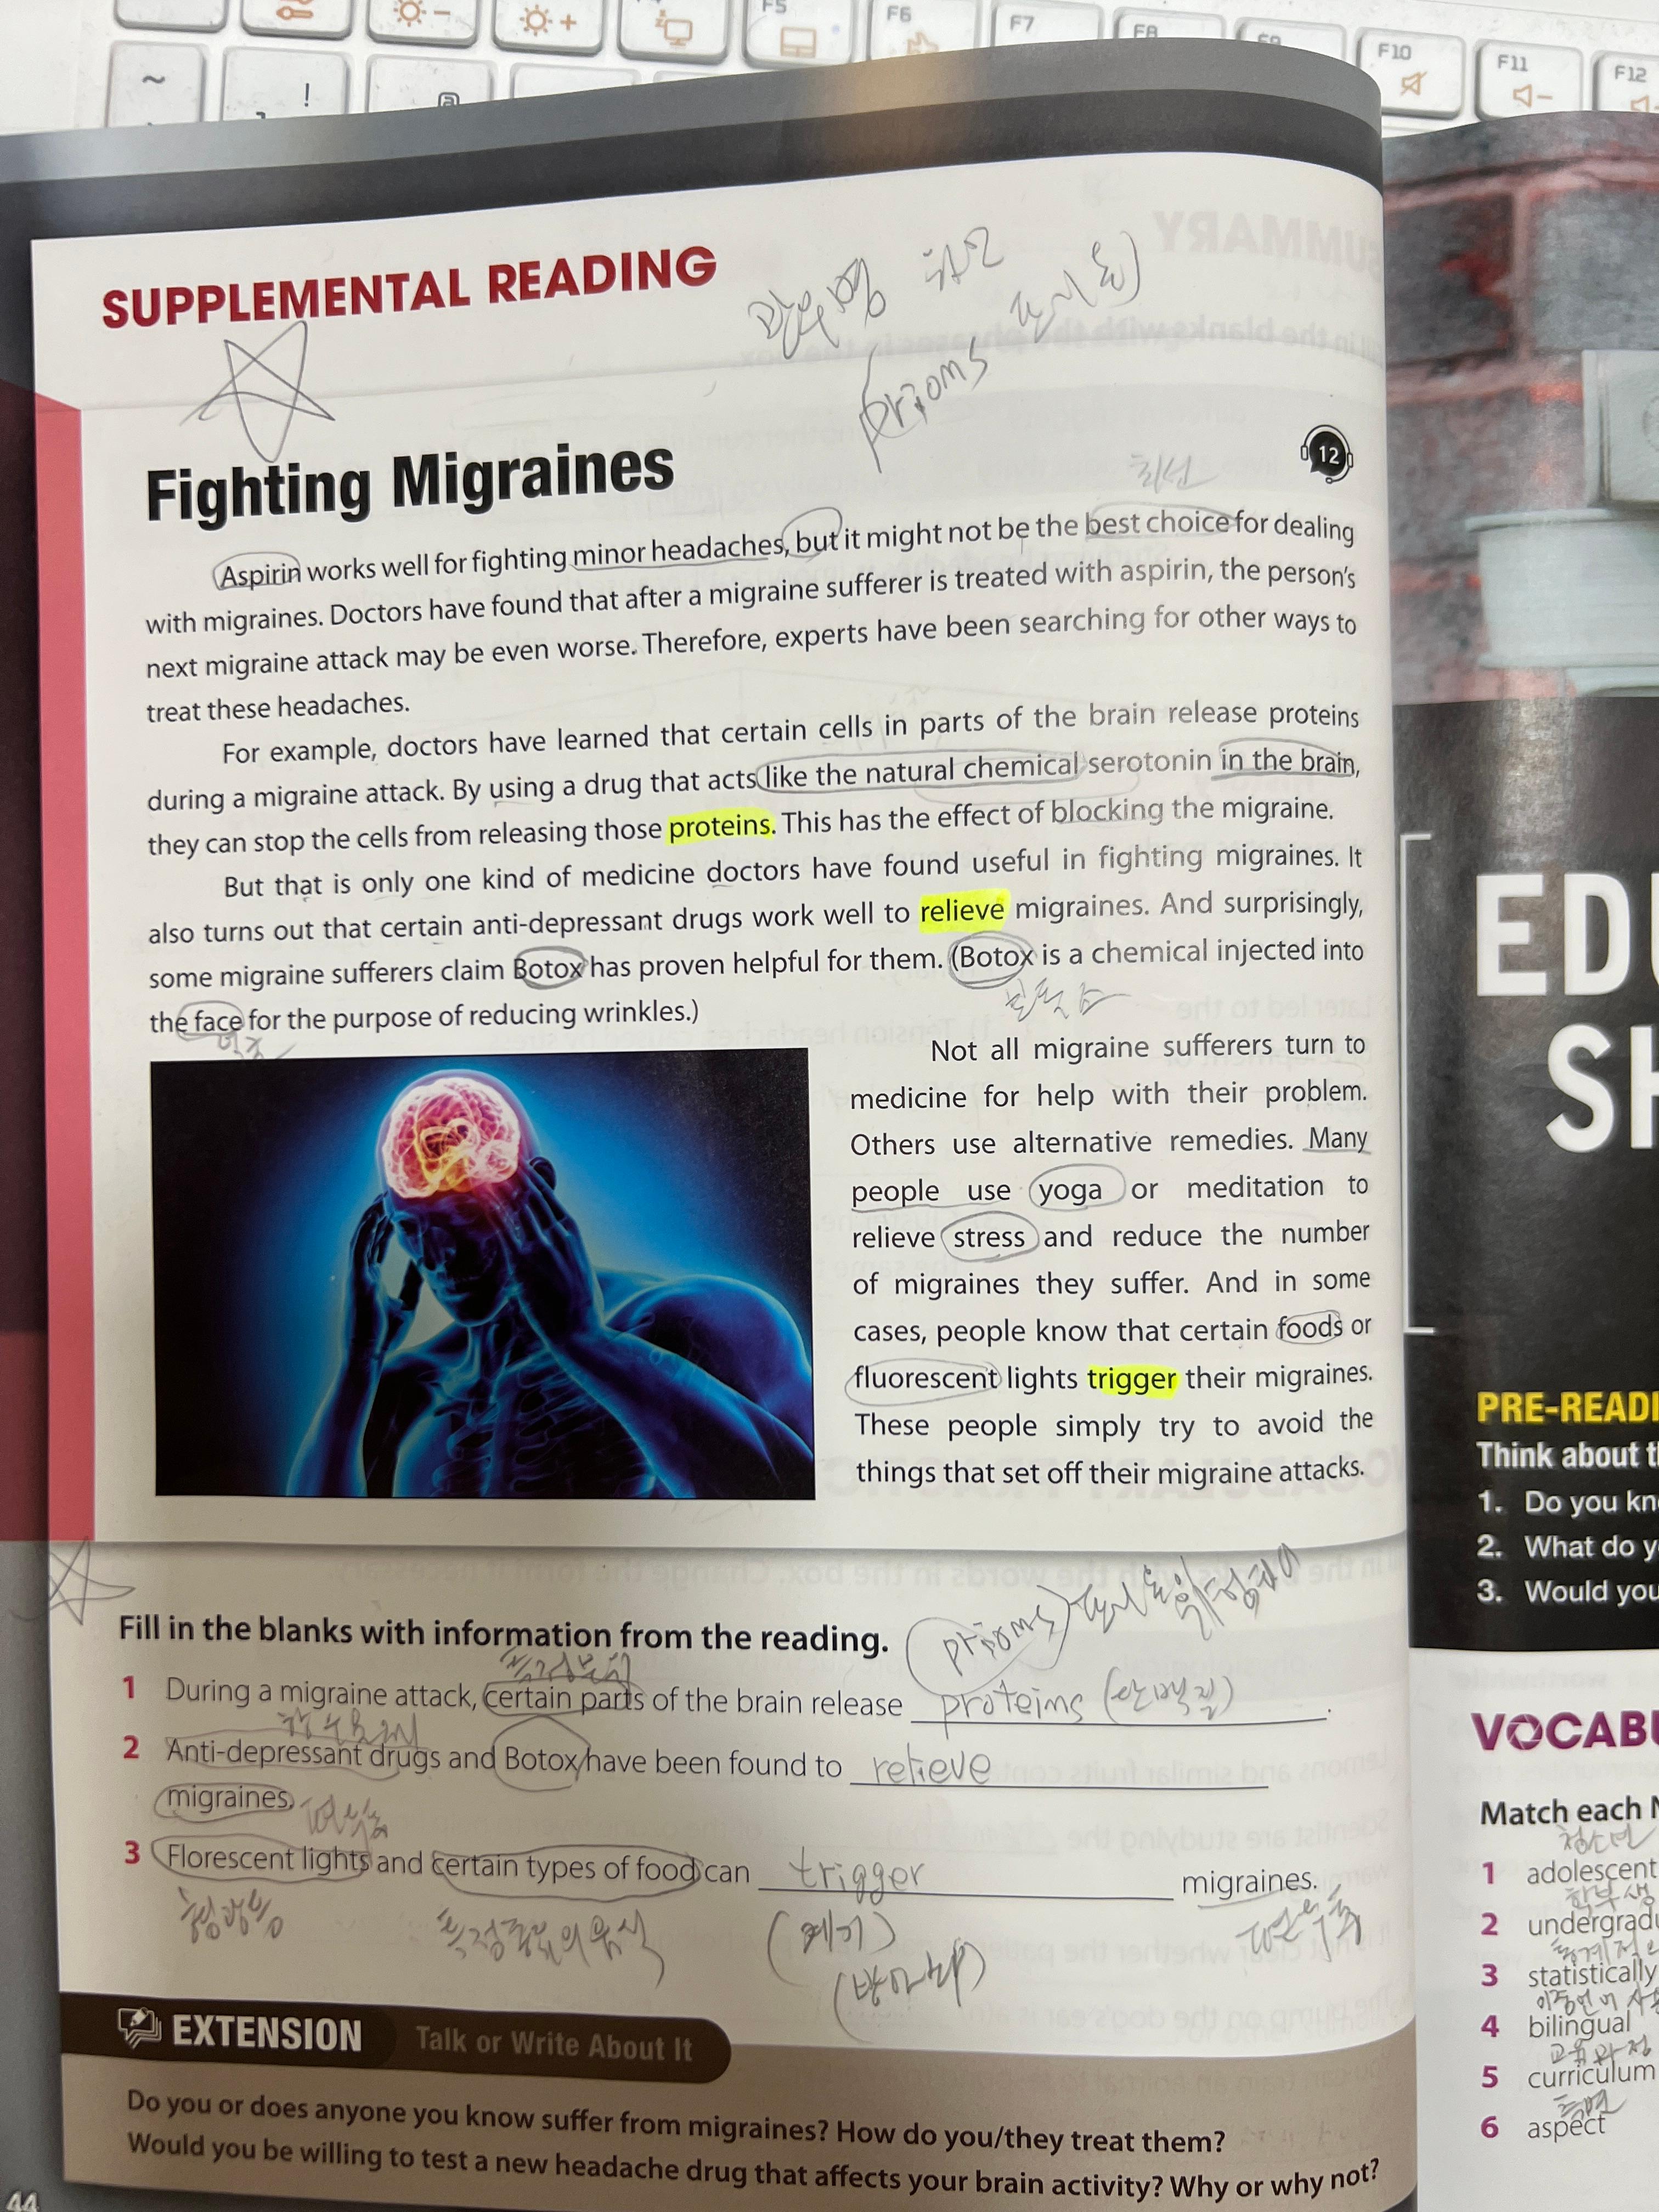 F5
F6
F7
F8
F10
F11
F12
~
!
SUPPLEMENTAL READING
광우병
prioms
Fighting Migraines
12
최선
Aspirin works well for fighting minor headaches, but it might not be the best choice for dealing
with migraines. Doctors have found that after a migraine sufferer is treated with aspirin, the person's
next migraine attack may be even worse. Therefore, experts have been searching for other ways to
treat these headaches.
For example, doctors have learned that certain cells in parts of the brain release proteins
during a migraine attack. By using a drug that acts like the natural chemical serotonin in the brain,
they can stop the cells from releasing those proteins. This has the effect of blocking the migraine.
But that is only one kind of medicine doctors have found useful in fighting migraines. It
also turns out that certain anti-depressant drugs work well to relieve migraines. And surprisingly,
some migraine sufferers claim Botox has proven helpful for them. (Botox is a chemical injected into
보톡스
the face for the purpose of reducing wrinkles.)
Not all migraine sufferers turn to
medicine for help with their problem.
Others use alternative remedies. Many
people use yoga or meditation to
relieve stress and reduce the number
of migraines they suffer. And in some
cases, people know that certain foods or
fluorescent lights trigger their migraines.
These people simply try to avoid the
things that set off their migraine attacks.
Fill in the blanks with information from the reading.
prioms
특정부위
1 During a migraine attack, certain parts of the brain release proteims (단백질).
항우울제
2 Anti-depressant drugs and Botox have been found to relieve
migraines. 편두통
3 Florescent lights and certain types of food can trigger migraines.
형광등 특정종류의음식 (계기) 편두통
(방아쇠)
EXTENSION Talk or Write About It
Do you or does anyone you know suffer from migraines? How do you/they treat them?
Would you be willing to test a new headache drug that affects your brain activity? Why or why not?
44
EDU
SH
PRE-READI
Think about t
1. Do you kn
2. What do y
3. Would you
VOCABU
Match each
청소년
1 adolescent
학부생
2 undergradu
3 statistically
이중언어
4 bilingual
교육과정
5 curriculum
측면
6 aspect